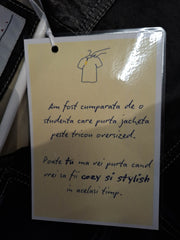 Am fost cumparata de o
studenta care purta jacheta
peste tricou oversized.
Poate tu ma vei purta cand
vrei sa fii cozy si stylish
in acelasi timp.